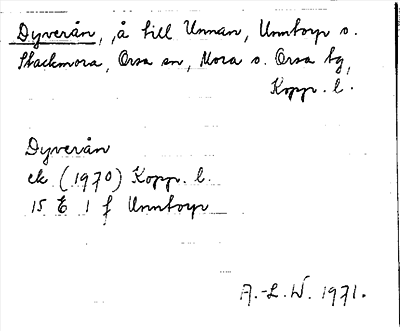 Dyverån, å till Unnån, Unntorp o.
Stackmora, Orsa sn, Mora o. Orsa tg,
Kopp. l.
Dyverån
ek (1970) Kopp. l.
15 E 1 f Unntorp
A.-L. W. 1971.